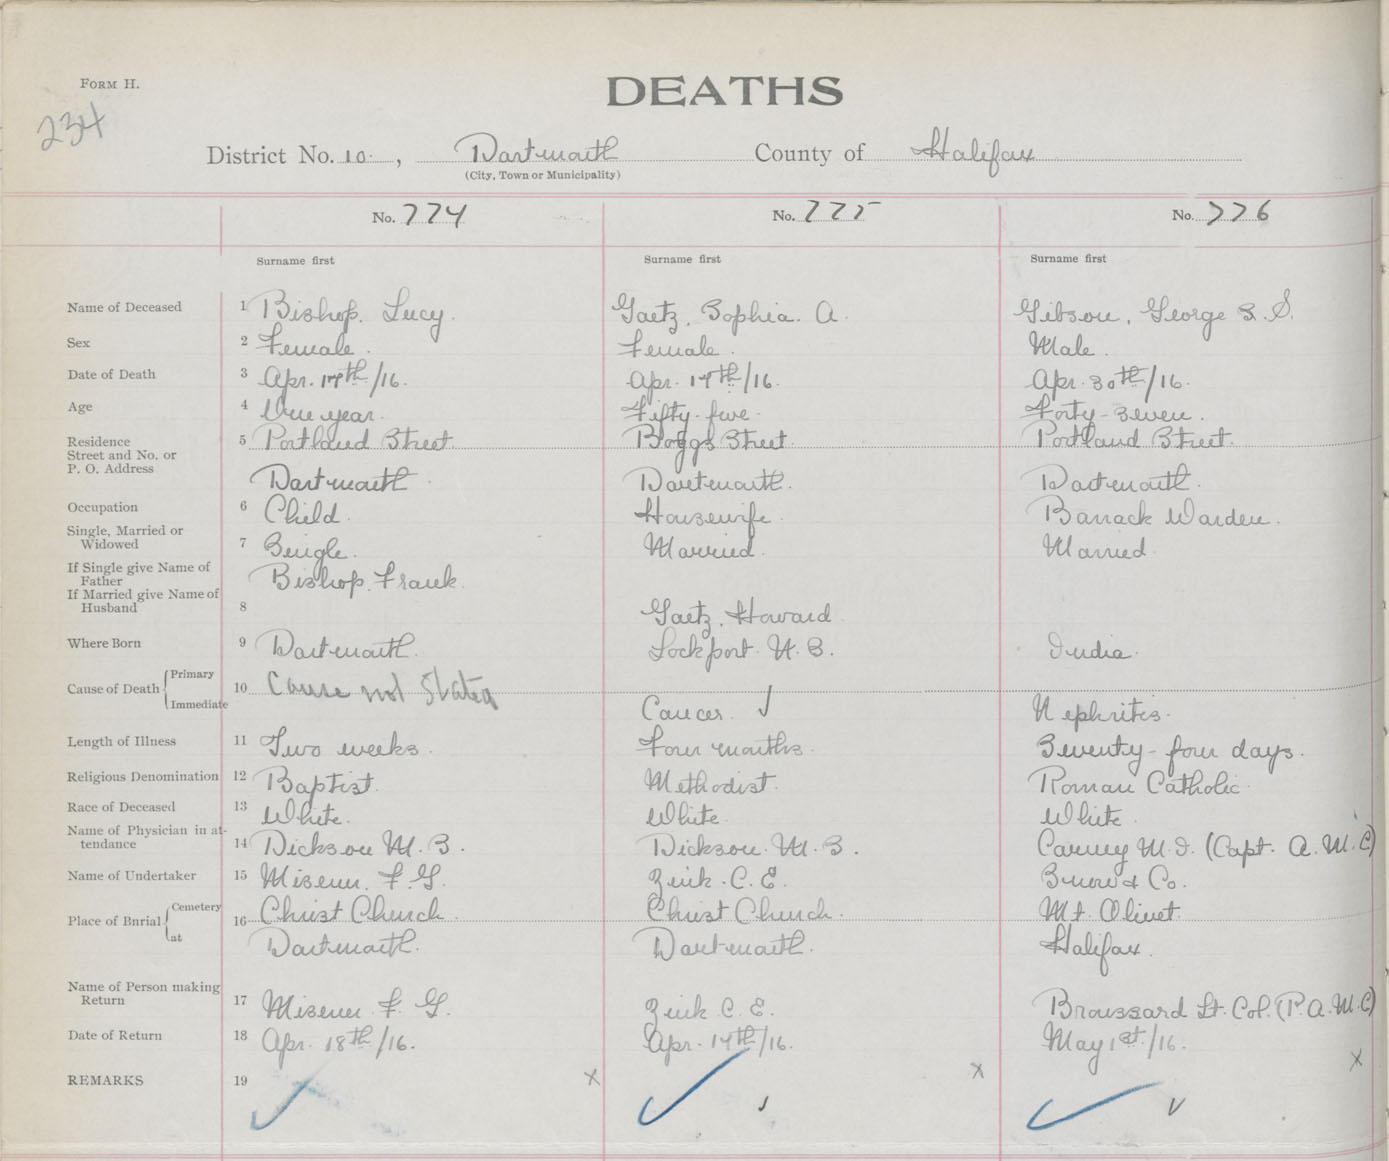 FORM H.
DEATHS
234
District No. 10. , Dartmouth County of Halifax
(City, Town or Municipality)
No. 774 No. 775 No. 776
Surname first Surname first Surname first
Name of Deceased 1 Bishop. Lucy. Gaetz, Sophia. A. Gibson, George S. S.
Sex 2 Female. Female. Male.
Date of Death 3 Apr. 17th/16. Apr. 17th/16. Apr. 30th/16.
Age 4 One year. Fifty-five. Forty-seven.
Residence 5 Portland Street. Boggs Street. Portland Street.
Street and No. or
P. O. Address Dartmouth. Dartmouth. Dartmouth.
Occupation 6 Child. Housewife. Barrack Warden.
Single, Married or
Widowed 7 Single. Married. Married.
If Single give Name of
Father Bishop. Frank.
If Married give Name of
Husband 8 Gaetz, Howard
Where Born 9 Dartmouth. Lockport. N. S. India.
Cause of Death Primary 10 Cause not Stated
Immediate Cancer. Nephritis.
Length of Illness 11 Two weeks. Four months. Seventy-four days.
Religious Denomination 12 Baptist. Methodist. Roman Catholic.
Race of Deceased 13 White. White. White.
Name of Physician in at-
tendance 14 Dickson M. B. Dickson. M. B. M. D. (Capt. A. M. C)
Name of Undertaker 15 Misenr. F. G. Zink. C. E. Snow & Co.
Place of Burial Cemetery 16 Christ Church. Christ Church. Mt. Olivet.
at Dartmouth. Dartmouth. Halifax.
Name of Person making
Return 17 Misenr. F. G. Zink C. E. Broussard Lt. Col. (P. A. M. C)
Date of Return 18 Apr. 18th/16. Apr. 17th/16. May 1st/16.
REMARKS 19 x x x